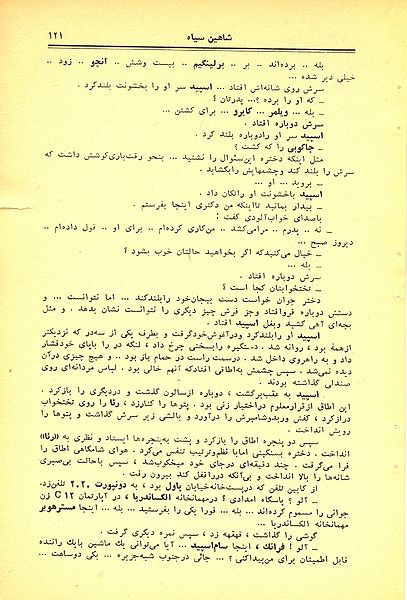 شاهین سیاه ۱۲۱
بله .. برده‌اند .. بر .. برلینگیم .. بیست وشش .. آنچو .. زود ..
خیلی دیر شده ...
سرش روی شانه‌اش افتاد . اسپید سر او را بخشونت بلندکرد .
ـ که او را برده ؟... پدرتان ؟
ـ بله ... ویلمر ... گایرو ... برای کشتن ...
سرش دوباره افتاد .
اسپید سر او رادوباره بلند کرد .
ـ جاکوبی را که کشت ؟
مثل اینکه دختره این‌سئوال را نشنید ... بنحو رقت‌باری‌کوشش داشت که
سرش را بلند کند وچشمهایش رابگشاید .
ـ بروید ... او ...
اسپید باخشونت او راتکان داد .
ـ بیدار بمانید تااینکه من دکتری اینجا بفرستم .
باصدای خواب‌آلودی گفت :
ـ نه .. پدرم .. مرامی‌کشد .. من‌کاری کرده‌ام .. برای او .. قول داده‌ام ..
دیروز صبح ...
ـ خیال می‌کنیدکه اگر بخواهید حالتان خوب بشود ؟
ـ بله ...
سرش دوباره افتاد .
ـ تختخوابتان کجا است ؟
دختر جوان خواست دست بیجان‌خود رابلندکند ... اما نتوانست ... و
دستش دوباره فروافتاد وجز فرش چیز دیگری را نتوانست نشان بدهد . و مثل
بچه‌ای آهی کشید وبغل اسپید افتاد .
اسپید او رابلندکرد ودرآغوش‌خودگرفت و بطرف یکی از سه‌در که نزدیکتر
ازهمهٔ بود ، روانه شد . دستگیره رابسختی چرخ داد ، لنگه در را باپای خودفشار
داد و به راهروی داخل شد . درسمت راست در حمام باز بود .. و هیچ چیزی درآن
دیده نمی‌شد . سپس چشمش به‌اطاقی افتادکه آنهم خالی بود . لباس مردانه‌ای روی
صندلی گذاشته بودند .
اسپید به عقب‌برگشت ، دوباره ازسالون گذشت و دردیگری را بازکرد .
این اطاق ازقرارمعلوم دراختیار زنی بود . پتوها را کنارزد ، رئا را روی تختخواب
درازکرد ، کفش وربدوشامبرش را درآورد و بالشی زیر سرش گذاشت و پتوها را
رویش انداخت .
سپس دو پنجره اطاق را بازکرد و پشت به‌پنجره‌ها ایستاد و نظری به (رئا)
انداخت . دختره بسنگینی اما بانظم‌وترتیب تنفس می‌کرد . هوای شامگاهی اطاق را
فرا می‌گرفت . چند دقیقه‌ای درجای خود میخکوب‌شد ، سپس باحالت بی‌صبری
شانه‌ها را بالا انداخت و بی‌آنکه دررا‌قفل کند بیرون رفت .
از کابین تلفن که درپست‌خانه‌خیابان پاول بود ، به دونپورت ۲۰۲۰ تلفن‌زد.
ـ آلو ؟ پاسگاه امدادی ؟ درمهمانخانه الکساندریا ، در آپارتمان 12 C زن
جوانی را مسموم کرده‌اند ... بله ... فورا یکی را بفرستید ... بله .. اینجا مستر‌هوپر
مهمانخانه الکساندریا ...
گوشی را گذاشت ، قهقهه زد ، سپس نمره دیگری گرفت .
ـ آلو ! فرانك ، اینجا سام‌اسپید ... آیا می‌توانی یك ماشین بایك راننده
قابل اطمینان برای من‌پیداکنی ؟ ... جائی درجنوب شبه‌جزیره ... یکی دوساعت ...